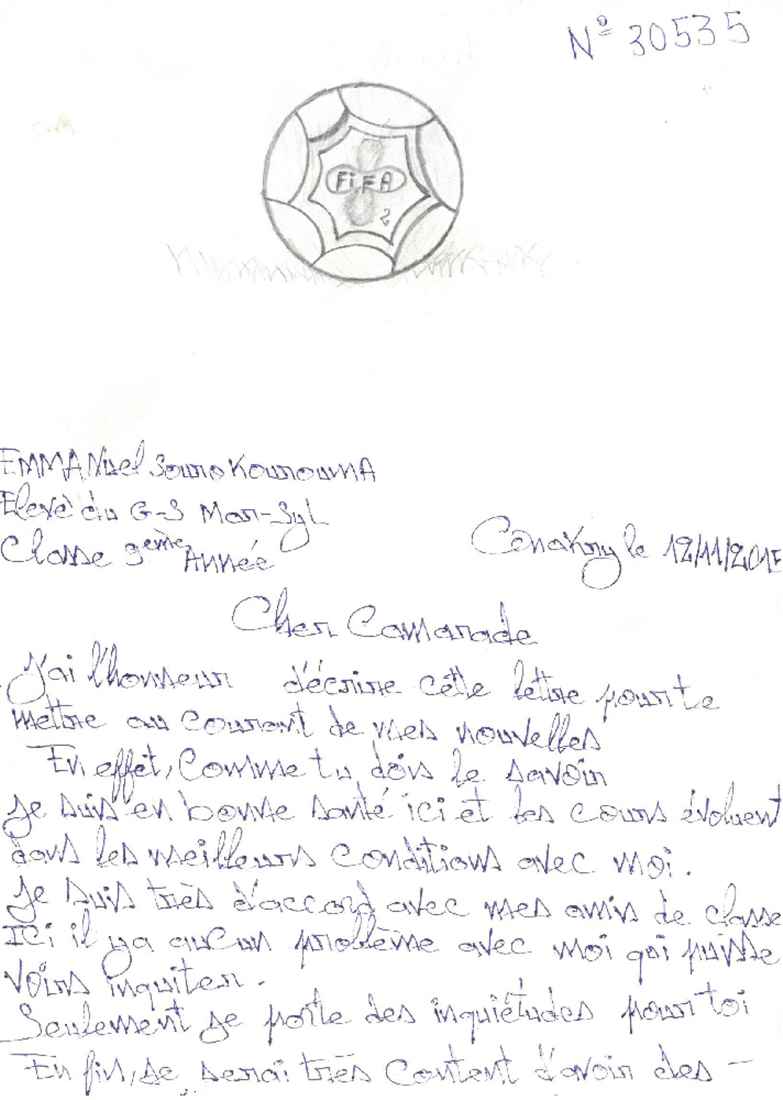 Nº 30535
FiFA
2
EMMANuel Sono KourouMA
Elevé du G-S Mar-Syl
Classe 9eme Année
Conakry le 12/11/201
Cher Camarade
J'ai l'honneur d'écrire cette lettre pour te
mettre au courant de mes nouvelles
En effet, Comme tu dois le savoir
je suis en bonne santé ici et les cours évoluent
dans les meilleurs conditions avec moi.
Je suis très d'accord avec mes amis de classe
Ici il ya aucun problème avec moi qui puisse
vous inquiter.
Seulement je porte des inquiétudes pour toi
En fin, je serai très content d'avoir des -